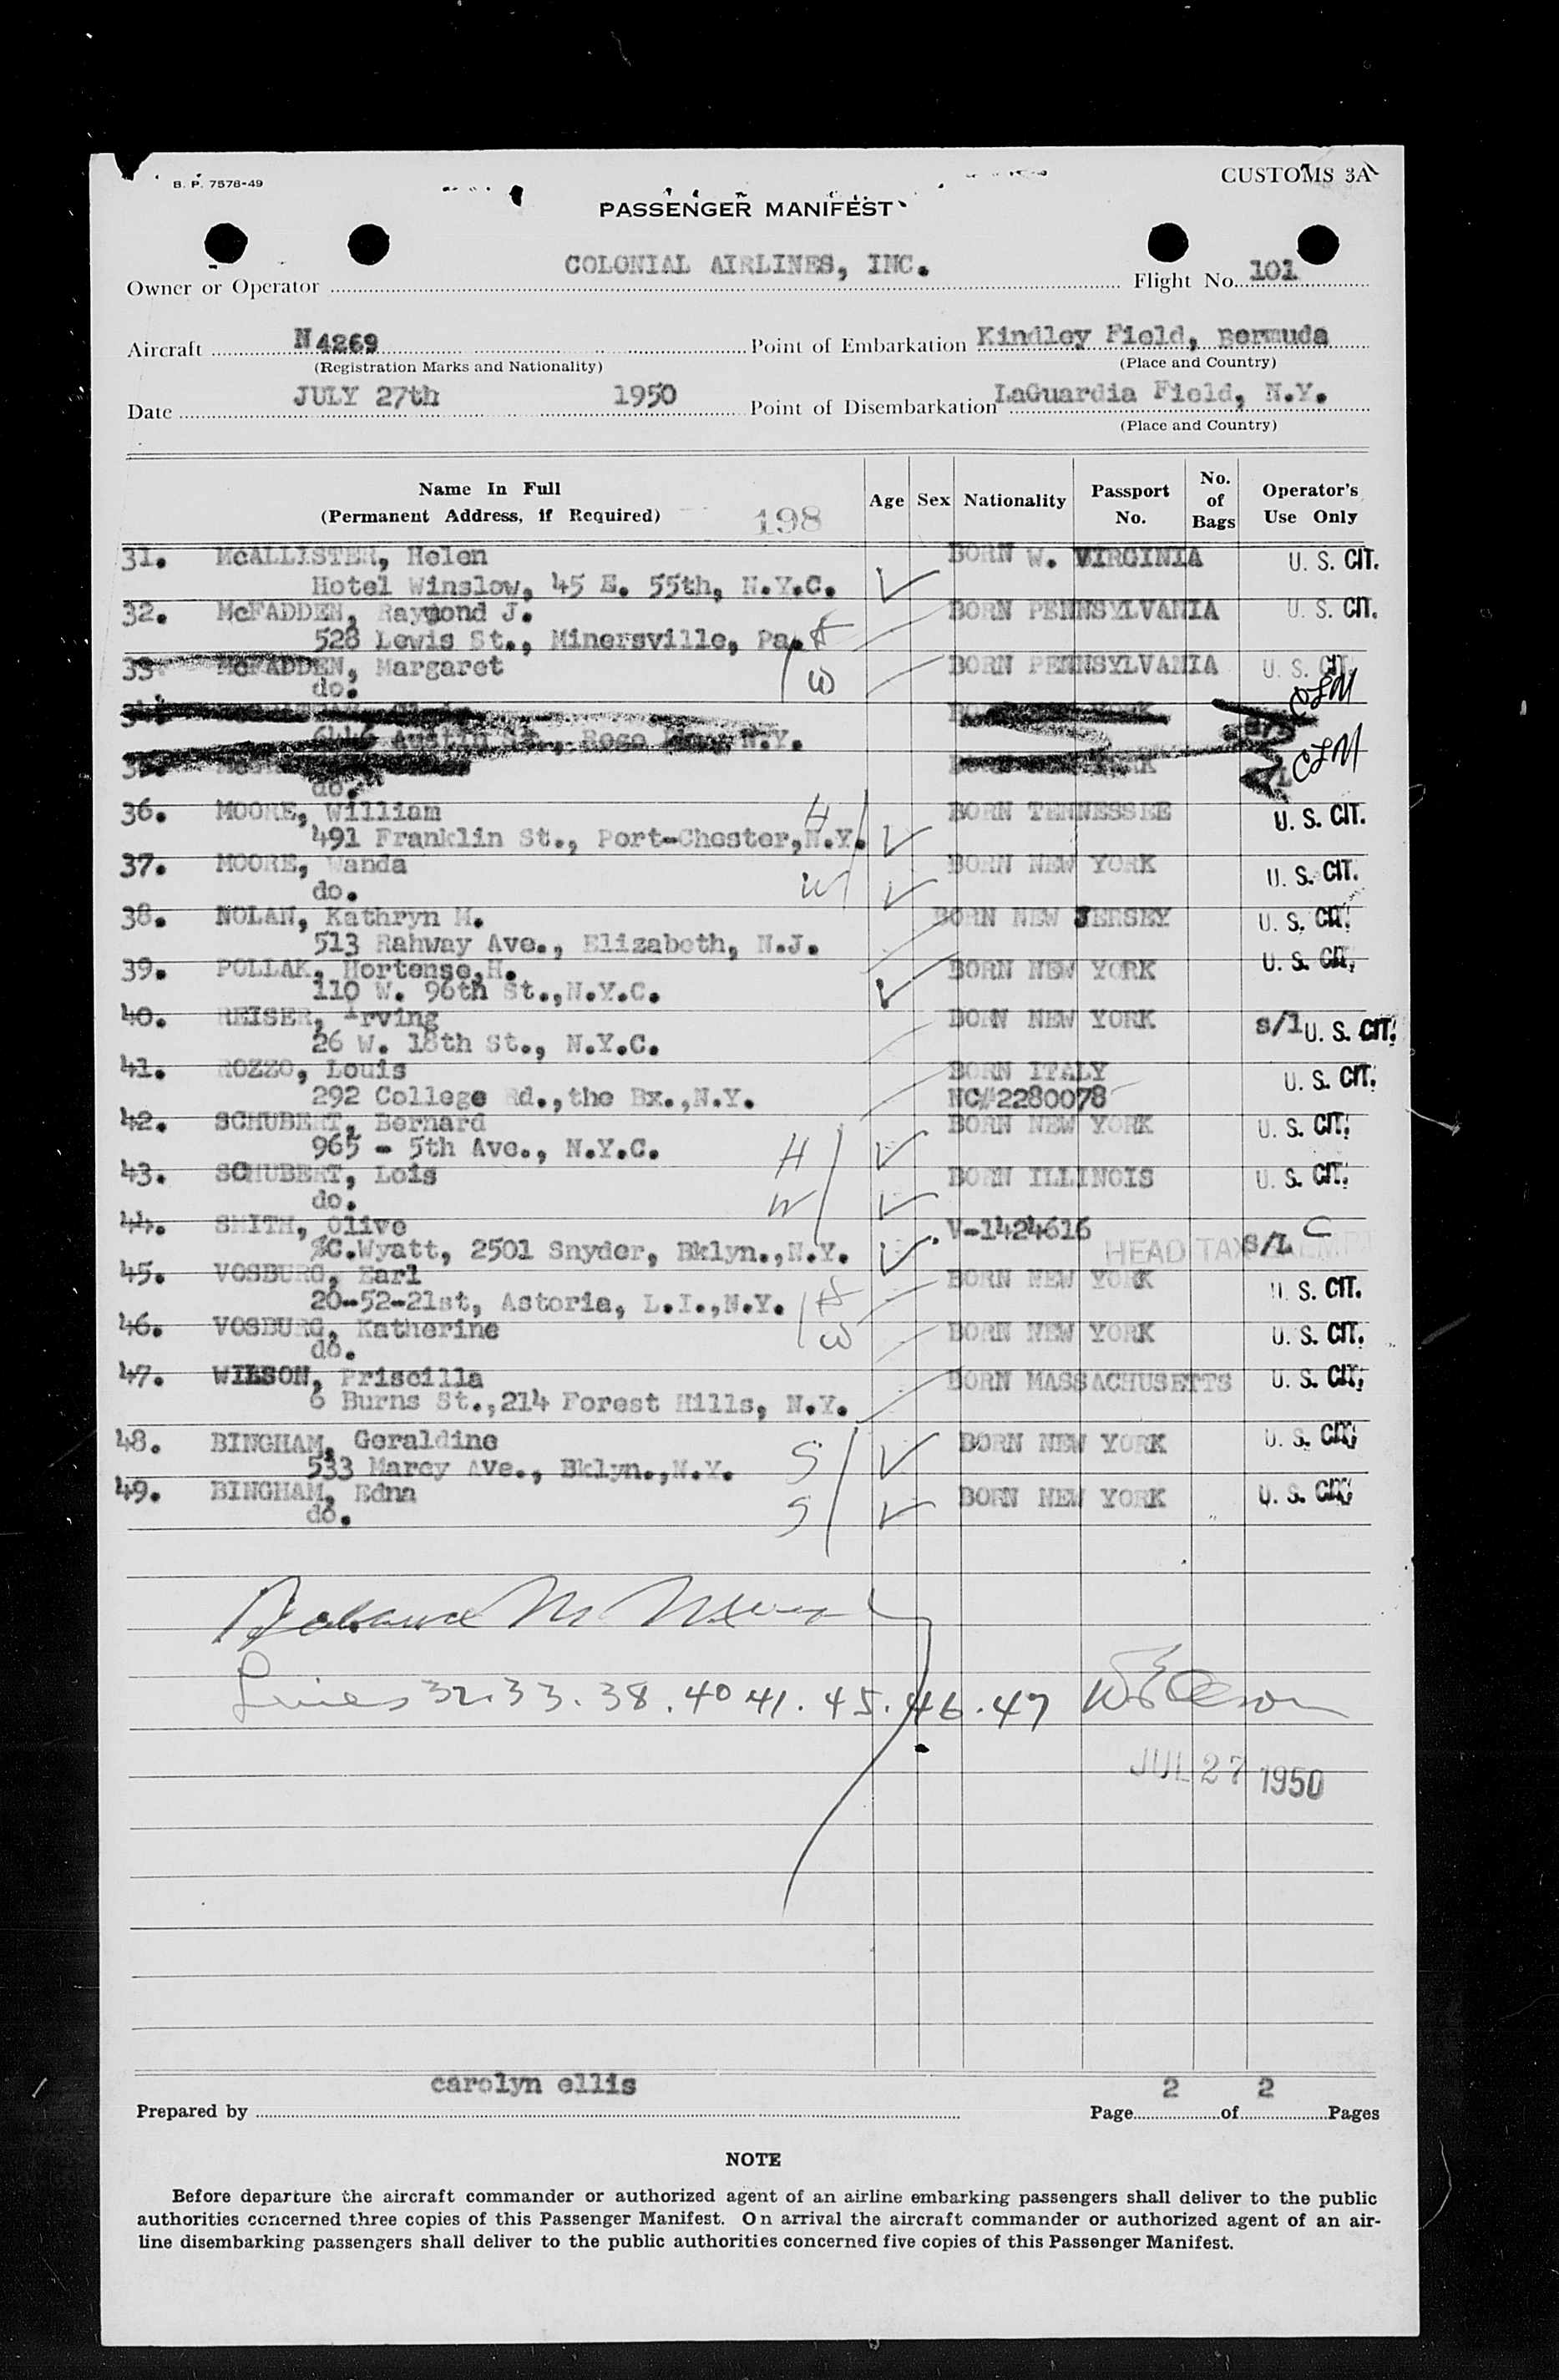 B. P. 7578-49
CUSTOMS 3A
PASSENGER MANIFEST
COLONIAL AIRLINES, INC.
Owner or Operator
Flight No. 101
Aircraft N4269 Point of Embarkation Kindley Field, Bermuda
(Registration Marks and Nationality) (Place and Country)
Date JULY 27th 1950 Point of Disembarkation LaGuardia Field, N.Y.
(Place and Country)
Name In Full
(Permanent Address, if Required) 198
Age Sex Nationality Passport No. No. of Bags Operator's Use Only
31. McALLISTER, Helen BORN W. VIRGINIA U. S. CIT.
Hotel Winslow, 45 E. 55th, N.Y.C.
32. McFADDEN, Raymond J. BORN PENNSYLVANIA U. S. CIT.
528 Lewis St., Minersville, Pa. H
33. McFADDEN, Margaret BORN PENNSYLVANIA U. S. CIT.
do. W
Austin St., Rego N.Y.
do.
36. MOORE, William H BORN TENNESSEE U. S. CIT.
491 Franklin St., Port-Chester,N.Y.
37. MOORE, Wanda BORN NEW YORK U. S. CIT.
do. W
38. NOLAN, Kathryn M. BORN NEW JERSEY U. S. CIT.
513 Rahway Ave., Elizabeth, N.J.
39. POLLAK, Hortense,H. BORN NEW YORK U. S. CIT.
110 W. 96th St.,N.Y.C.
40. REISER, Irving BORN NEW YORK s/l U. S. CIT.
26 W. 18th St., N.Y.C.
41. ROZZO, Louis BORN ITALY U. S. CIT.
292 College Rd.,the Bx.,N.Y. NC#2280078
42. SCHUBERT, Bernard BORN NEW YORK U. S. CIT.
965 - 5th Ave., N.Y.C. H
43. SCHUBERT, Lois BORN ILLINOIS U. S. CIT.
do. W
44. SMITH, Olive V-1424616 S/L C
%C.Wyatt, 2501 Snyder, Bklyn.,N.Y. HEAD TAX
45. VOSBURG, Earl BORN NEW YORK U. S. CIT.
20-52-21st, Astoria, L.I.,N.Y. H
46. VOSBURG, Katherine BORN NEW YORK U. S. CIT.
do. W
47. WILSON, Priscilla BORN MASSACHUSETTS U. S. CIT.
6 Burns St.,214 Forest Hills, N.Y.
48. BINGHAM, Geraldine S BORN NEW YORK U. S. CIT.
533 Marcy Ave., Bklyn.,N.Y.
49. BINGHAM, Edna BORN NEW YORK U. S. CIT.
do. S
Lines 32. 33. 38. 40 41. 45. 46. 47
JUL 27 1950
carolyn ellis
Prepared by
Page 2 of 2 Pages
NOTE
Before departure the aircraft commander or authorized agent of an airline embarking passengers shall deliver to the public
authorities concerned three copies of this Passenger Manifest. On arrival the aircraft commander or authorized agent of an air-
line disembarking passengers shall deliver to the public authorities concerned five copies of this Passenger Manifest.